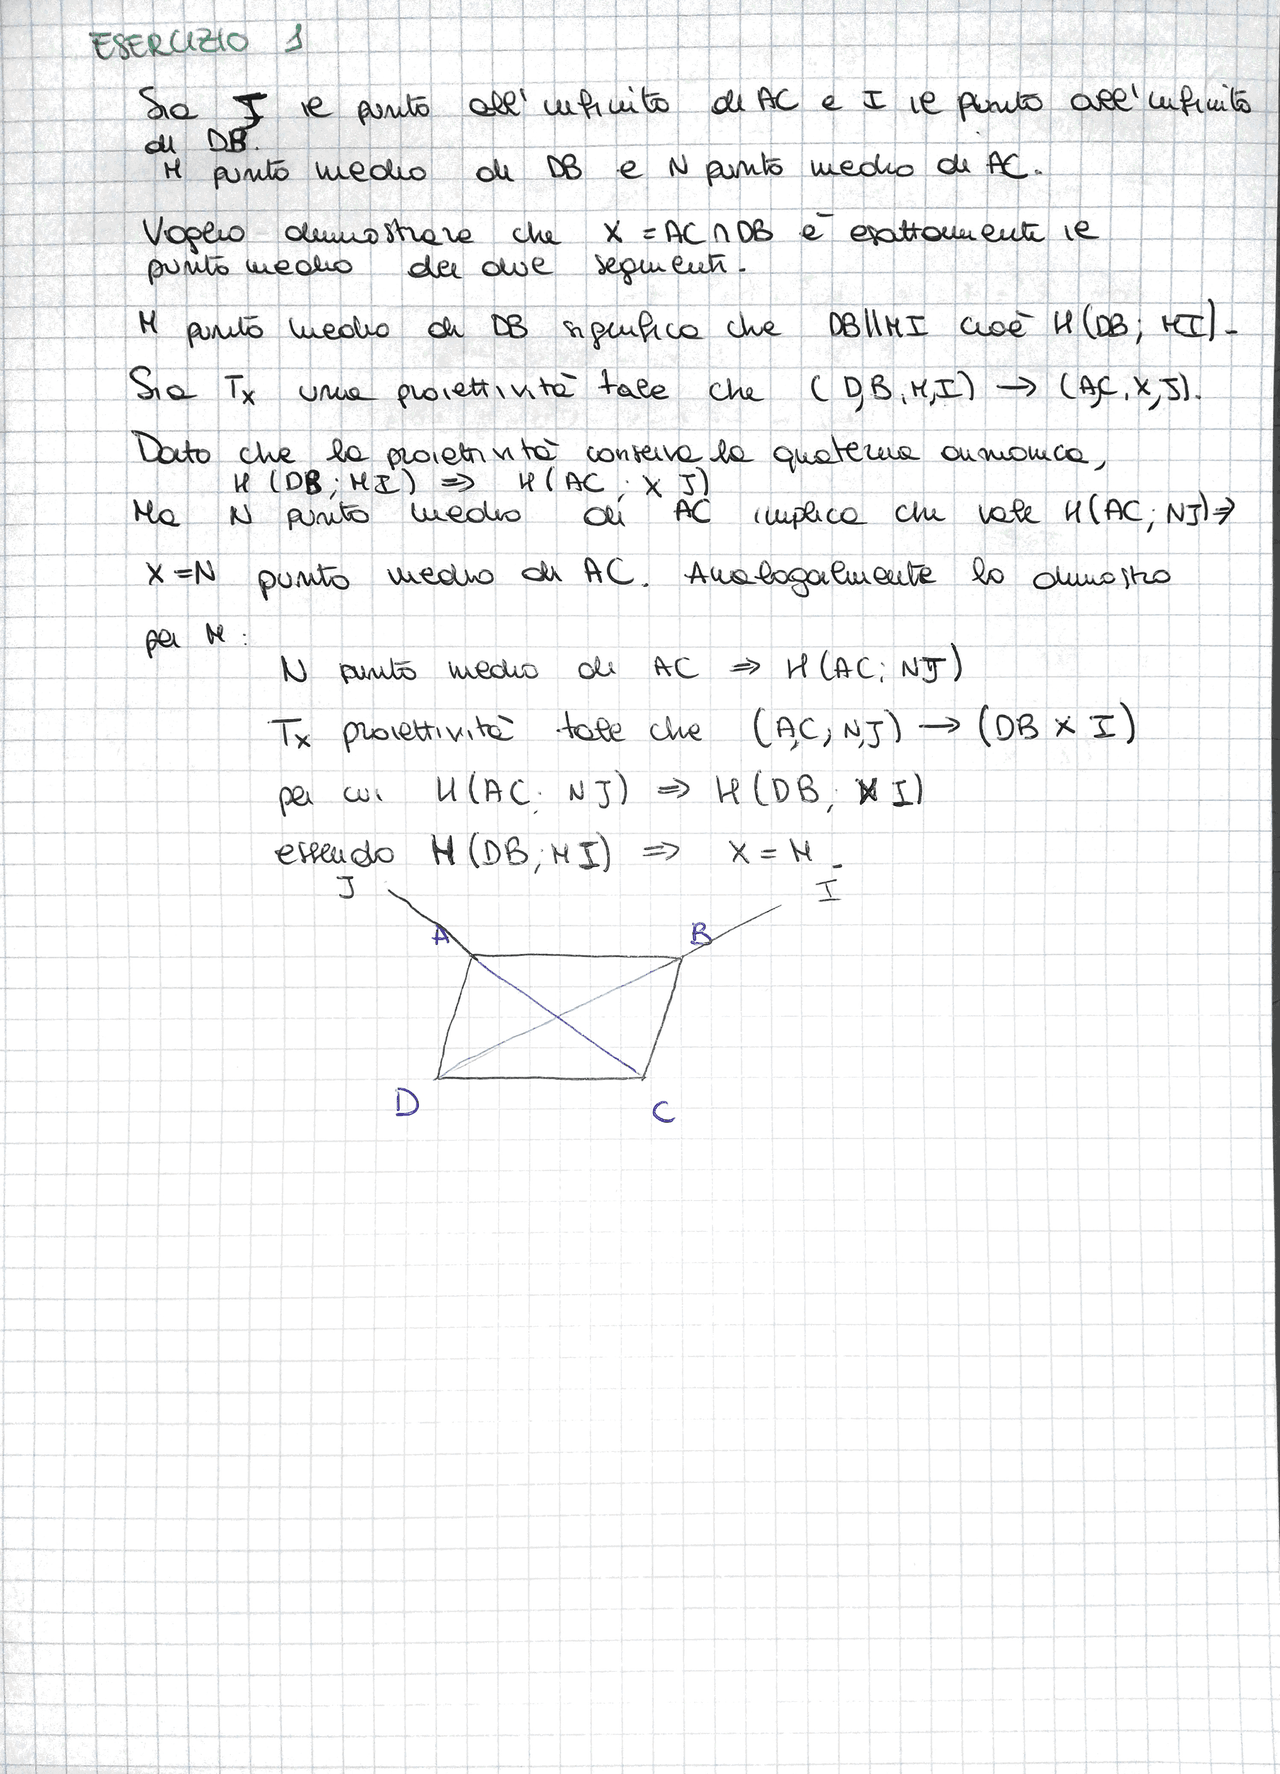 ESERCIZIO 1
Sia J il punto all'infinito di AC e I il punto all'infinito
di DB.
M punto medio di DB e N punto medio di AC.
Voglio dimostrare che X = AC ∩ DB è esattamente il
punto medio dei due segmenti.
M punto medio di DB significa che DB||MI cioè H(DB; MI).
Sia Tx una proiettività tale che (D,B,M,I) → (A,C,X,J).
Dato che la proiettività conserva la quaterna armonica,
H(DB; MI) ⇒ H(AC; XJ)
Ma N punto medio di AC implica che vale H(AC; NJ) ⇒
X=N punto medio di AC. Analogalmente lo dimostro
per M:
N punto medio di AC ⇒ H(AC; NJ)
Tx proiettività tale che (A,C,N,J) → (DB X I)
per cui H(AC; NJ) ⇒ H(DB; XI)
essendo H(DB; MI) ⇒ X = M.
J I
A B
D C